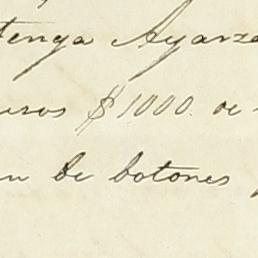 tenga Ayarza
uros $1000. de
n de botones